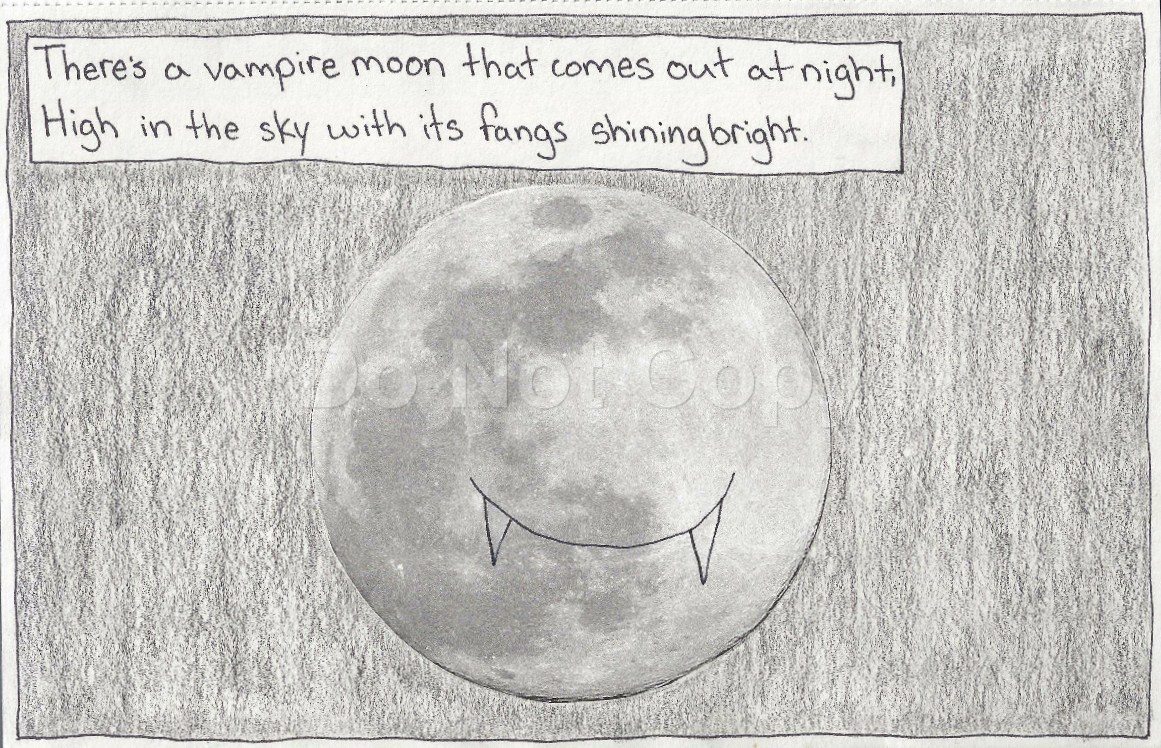 There's a vampire moon that comes out at night,
High in the sky with its fangs shining bright.
Do Not Copy